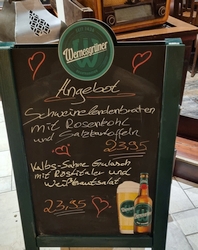 Wernesgrüner
Angebot
Schweinelendenbraten
mit Rosenkohl
und Salzkartoffeln
23,95
Kalbs-Sahne Gulasch
mit Rösttaler und
Weißkrautsalat
23,95